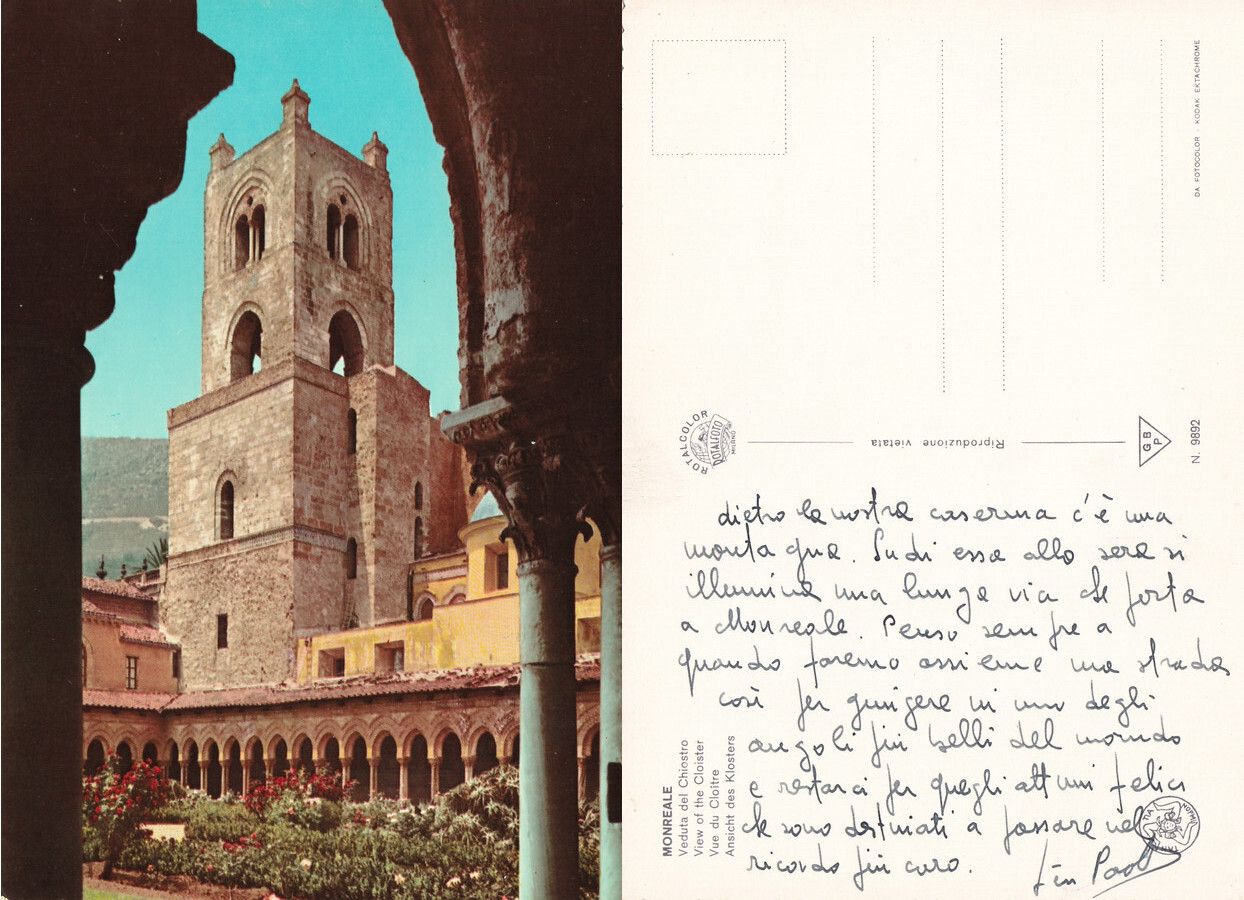 DA FOTOCOLOR · KODAK EKTACHROME
ROTALCOLOR
ROTALFOTO
MILANO
Riproduzione vietata
GBP
N. 9892
dietro la nostra caserma c'è una
montagna. Su di essa alla sera si
illumina una lunga via che porta
a Monreale. Penso sempre a
quando faremo assieme una strada
così per giungere in uno degli
angoli più belli del mondo
e restarci per quegli attimi felici
che sono destinati a passare nel
ricordo più caro.
Paolo
MONREALE
Veduta del Chiostro
View of the Cloister
Vue du Cloître
Ansicht des Klosters